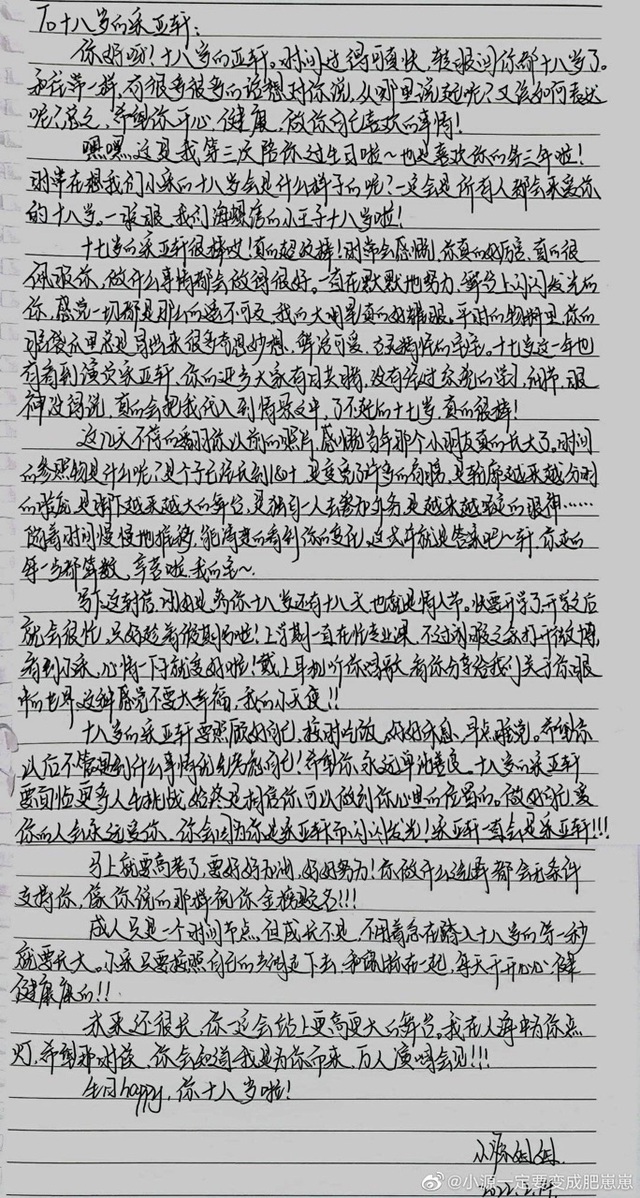 To十八岁的宋亚轩:
你好呀!十八岁的亚轩。时间过得可真快,转眼间你都十八岁了。
和往常一样,有很多很多的话想对你说,从哪里说起呢?又该如何表达
呢?总之,希望你开心,健康,做你自己喜欢的事情!
嘿嘿,这是我第三次陪你过生日啦~也是喜欢你的第三年啦!
时常在想我们小宋的十八岁会是什么样子的呢?一定会是所有人都会来爱你
的十八岁。一眨眼,我们海螺湾的小王子十八岁啦!
十七岁的宋亚轩很棒哎!真的超级棒!时常会感慨,你真的好厉害,真的很
佩服你,做什么事情都会做得很好。一直在默默地努力,舞台上闪闪发光的
你,感觉一切都是那么的遥不可及,我的大明星真的好耀眼。平时的物料里,你的
脑袋瓜里总是冒出来很多奇思妙想,鲜活可爱,古灵精怪的宝宝。十七岁这一年也
有看到演员宋亚轩,你的进步大家有目共睹,没有经过系统的学习,细节,眼
神没得说,真的会把我代入到情景之中,了不起的十七岁,真的很棒!
这几天不停的翻你以前的照片,感慨当年那个小朋友真的长大了。时间
的参照物是什么呢?是个子已经长到181+,是变高了许多的肩膀,是轮廓越来越分明
的脸庞,是脚下越来越大的舞台,是独自一人去参加外务,是越来越坚定的眼神……
随着时间慢慢地推移,能清楚的看到你的变化,这大概就是答案吧~轩,你走的
每一步都算数,辛苦啦,我的宝~
写下这封信,刚好是离你十八岁还有十八天,也就是情人节。快要开学了,开学之后
就会很忙,只好趁着假期写啦!上学期一直在忙专业课,不过闲暇之余打开微博,
看到小宋,心情一下子就变好啦!戴上耳机听你唱歌,看你分享给我们关于你眼
中的世界,这种感觉不要太幸福,我的小天使!!
十八岁的宋亚轩要照顾好自己,按时吃饭,好好休息,早点睡觉。希望你
以后不管遇到什么事情优先考虑自己!希望你永远单纯善良。十八岁的宋亚轩
要面临更多人生挑战,始终是相信你可以做到你心里的位置的。做好自己,爱
你的人会永远爱你,你会因为你是宋亚轩而闪闪发光!宋亚轩一直会是宋亚轩!!!
马上就要高考了,要好好加油,好好努力!你做什么选择都会无条件
支持你,像你说的那样祝你金榜题名!!!
成人只是一个时间节点,但成长不是,不用着急在踏入十八岁的第一秒
就要长大。小宋只要按照自己的步调走下去,和朋友们在一起,每天开开心心,健
健康康的!!
未来还很长,你一定会站上更高更大的舞台。我在人海中为你点
灯,希望那时候,你会知道我是为你而来,万人演唱会见!!!
生日happy,你十八岁啦!
小源姐姐
2022.2.14
@小源一定要变成肥崽崽